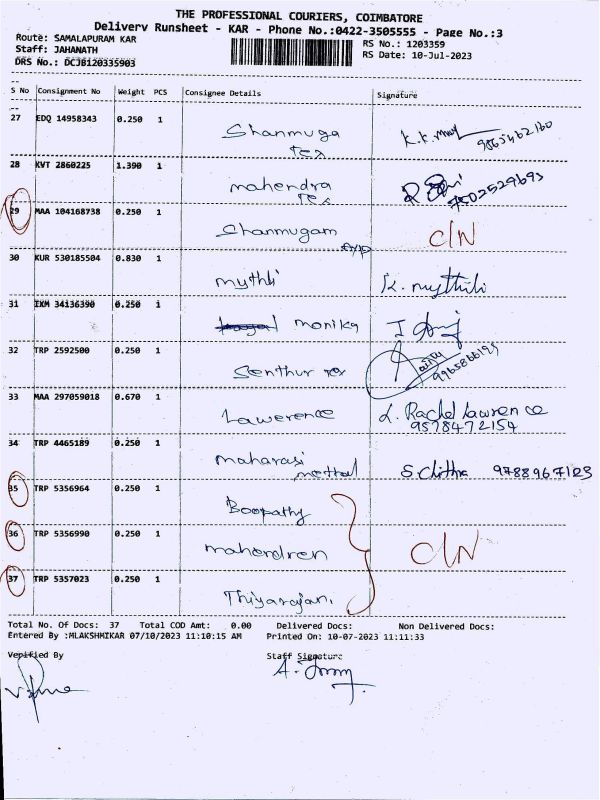 THE PROFESSIONAL COURIERS, COIMBATORE
Delivery Runsheet - KAR - Phone No.:0422-3505555 - Page No.:3
Route: SAMALAPURAM KAR
RS No.: 1203359
Staff: JAHANATH
RS Date: 10-Jul-2023
DRS No.: DCJB120335903
S No Consignment No Weight PCS Consignee Details Signature
27 EDQ 14958343 0.250 1 Shanmuga Tex K.K.
28 KVT 2860225 1.390 1 mahendra Tex 7502529693
29 MAA 104168738 0.250 1 Shanmugam C/N
30 KUR 530185504 0.830 1 mythli K. mythili
31 IXM 34136390 0.250 1 monika
32 TRP 2592500 0.250 1 Senthur Tex 9965866195
33 MAA 297059018 0.670 1 Lawerence L. Rachel Lawrence
9578472154
34 TRP 4465189 0.250 1 maharasi mettal S. Chithra 9788967123
35 TRP 5356964 0.250 1 Boopathy
36 TRP 5356990 0.250 1 mahendren C/N
37 TRP 5357023 0.250 1 Thiyarajan.
Total No. Of Docs: 37 Total COD Amt: 0.00 Delivered Docs: Non Delivered Docs:
Entered By :MLAKSHMIKAR 07/10/2023 11:10:15 AM Printed On: 10-07-2023 11:11:33
Verified By Staff Signature